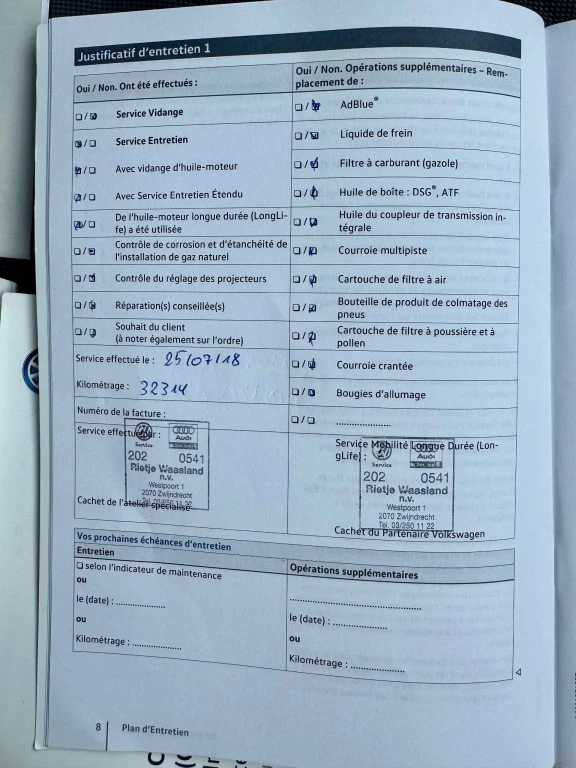 Justificatif d'entretien 1
Oui / Non. Ont été effectués :
❏ / ❏ Service Vidange
❏ / ❏ Service Entretien
❏ / ❏ Avec vidange d'huile-moteur
❏ / ❏ Avec Service Entretien Étendu
❏ / ❏ De l'huile-moteur longue durée (LongLi-
fe) a été utilisée
❏ / ❏ Contrôle de corrosion et d'étanchéité de
l'installation de gaz naturel
❏ / ❏ Contrôle du réglage des projecteurs
❏ / ❏ Réparation(s) conseillée(s)
❏ / ❏ Souhait du client
(à noter également sur l'ordre)
Service effectué le : 25/07/18
Kilométrage : 32314
Numéro de la facture :
Service effectué par :
Service
Audi
202 0541
Rietje Waasland
n.v.
Westpoort 1
2070 Zwijndrecht
Tel. 03/250 11 22
Cachet de l'atelier spécialisé
Oui / Non. Opérations supplémentaires – Rem-
placement de :
❏ / ❏ AdBlue®
❏ / ❏ Liquide de frein
❏ / ❏ Filtre à carburant (gazole)
❏ / ❏ Huile de boîte : DSG®, ATF
❏ / ❏ Huile du coupleur de transmission in-
tégrale
❏ / ❏ Courroie multipiste
❏ / ❏ Cartouche de filtre à air
❏ / ❏ Bouteille de produit de colmatage des
pneus
❏ / ❏ Cartouche de filtre à poussière et à
pollen
❏ / ❏ Courroie crantée
❏ / ❏ Bougies d'allumage
❏ / ❏ .....................
Service Mobilité Longue Durée (Lon-
gLife) :
Service
Audi
202 0541
Rietje Waasland
n.v.
Westpoort 1
2070 Zwijndrecht
Tel. 03/250 11 22
Cachet du Partenaire Volkswagen
Vos prochaines échéances d'entretien
Entretien
❏ selon l'indicateur de maintenance
ou
le (date) : ...................
ou
Kilométrage : ...................
Opérations supplémentaires
..................................................
le (date) : .....................
ou
Kilométrage : .....................
8 Plan d'Entretien